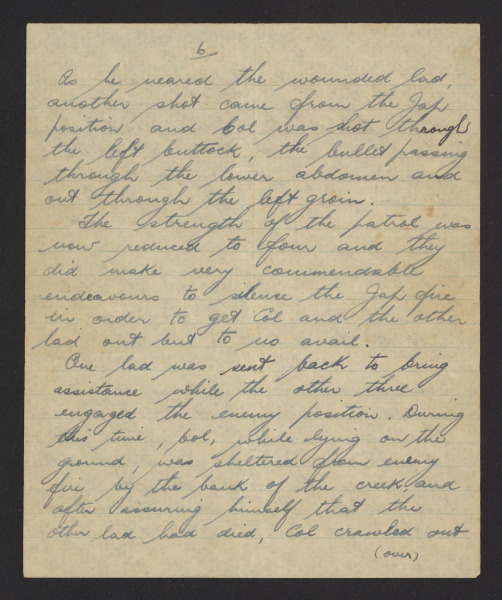 6
As he neared the wounded lad,
another shot came from the Jap
position and Col was shot through
the left buttock, the bullet passing
through the lower abdomen and
out through the left groin.
The strength of the patrol was
now reduced to four and they
did make very commendable
endeavours to silence the Jap fire
in order to get Col and the other
lad out but to no avail.
One lad was sent back to bring
assistance while the other three
engaged the enemy position. During
this time, Col, while lying on the
ground, was sheltered from enemy
fire by the bank of the creek and
after assuring himself that the
other lad had died, Col crawled out
(over)